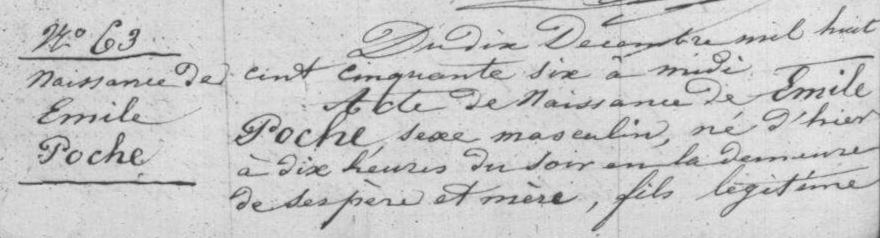 N° 63
Naissance de
Emile
Poche
Du dix Decembre mil huit
cint cinquante six à midi
Acte de Naissance de Emile
Poche, sexe masculin, né d'hier
à dix heures du soir en la demeure
de ses père et mère, fils légitime